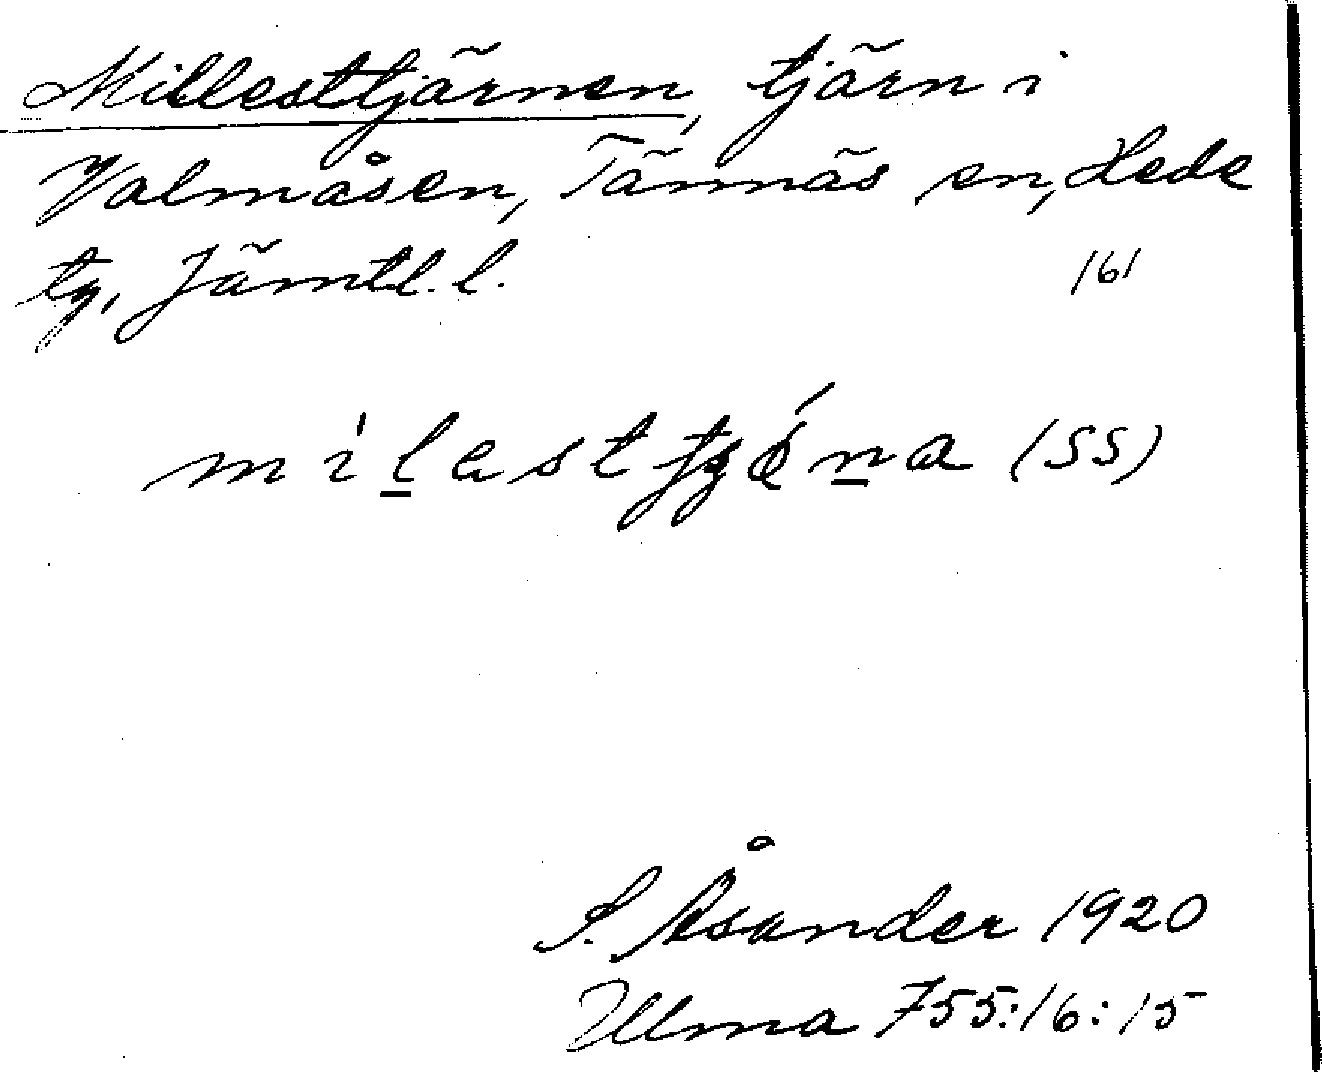 Millesttjärnen, tjärn i
Valmåsen, Tännäs sn, Hede
tg, Jämtl. l. 161
(SS)
S. Åsander 1920
Ulma 755:16:15